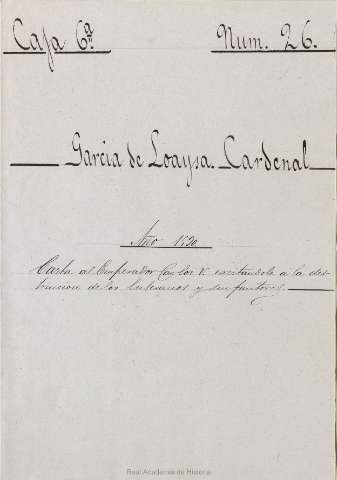 Caja 6ª
Num. 26.
Garcia de Loaysa. Cardenal
Año 1530
Carta al Emperador Carlos V. excitandole a la des-
truccion de los Luteranos y sus fautores.
Real Academia de Historia